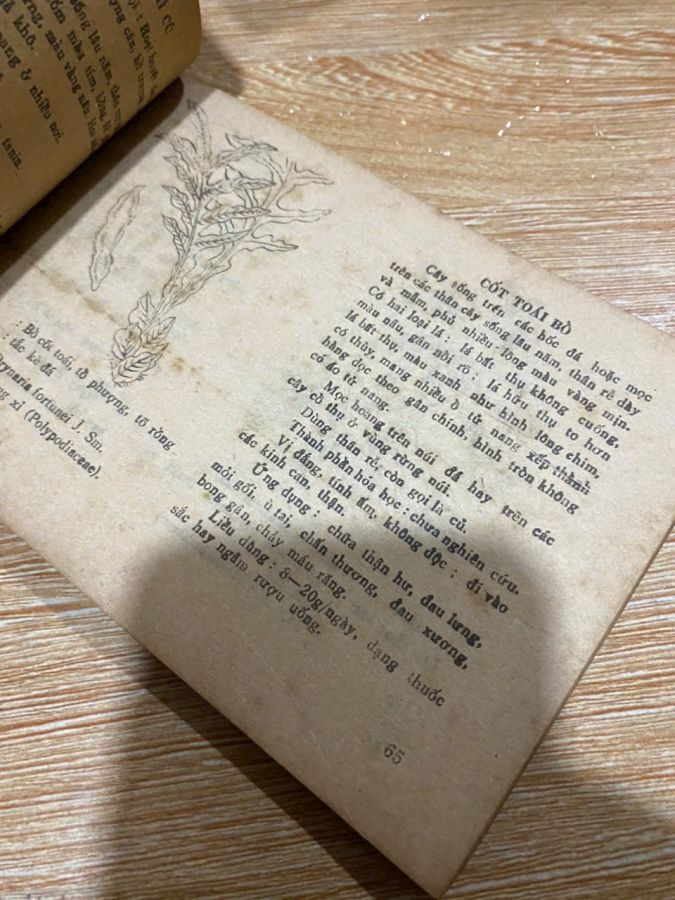 CỐT TOÁI BỔ
Cây sống trên các hốc đá hoặc mọc
trên các thân cây sống lâu năm, thân rễ dày
và mầm, phủ nhiều lông màu vàng mịn.
Có hai loại lá: lá bất thụ không cuống,
màu nâu, gân nổi rõ; lá hữu thụ to hơn
lá bất thụ, màu xanh như hình lông chim,
có thùy, mang nhiều ổ tử nang xếp thành
hàng dọc theo gân chính, hình tròn không
có áo tử nang.
Mọc hoang trên núi đá hay trên các
cây cổ thụ ở vùng rừng núi.
Dùng thân rễ, còn gọi là củ.
Thành phần hóa học: chưa nghiên cứu.
Vị đắng, tính ấm, không độc; đi vào
các kinh can, thận.
Ứng dụng: chữa thận hư, đau lưng,
mỏi gối, ù tai, chấn thương, đau xương,
bong gân, chảy máu răng.
Liều dùng: 8—20g/ngày, dạng thuốc
sắc hay ngâm rượu uống.
65
: Bổ cốt toái, tổ phượng, tổ rồng
: tắc kè đá
Drynaria fortunei J. Sm.
xỉ (Polypodiaceae).
CỎ
: Hoạt huyết
sống lâu năm
màu tím
màu vàng nâu
khô.
hoang ở nhiều nơi.
tanin